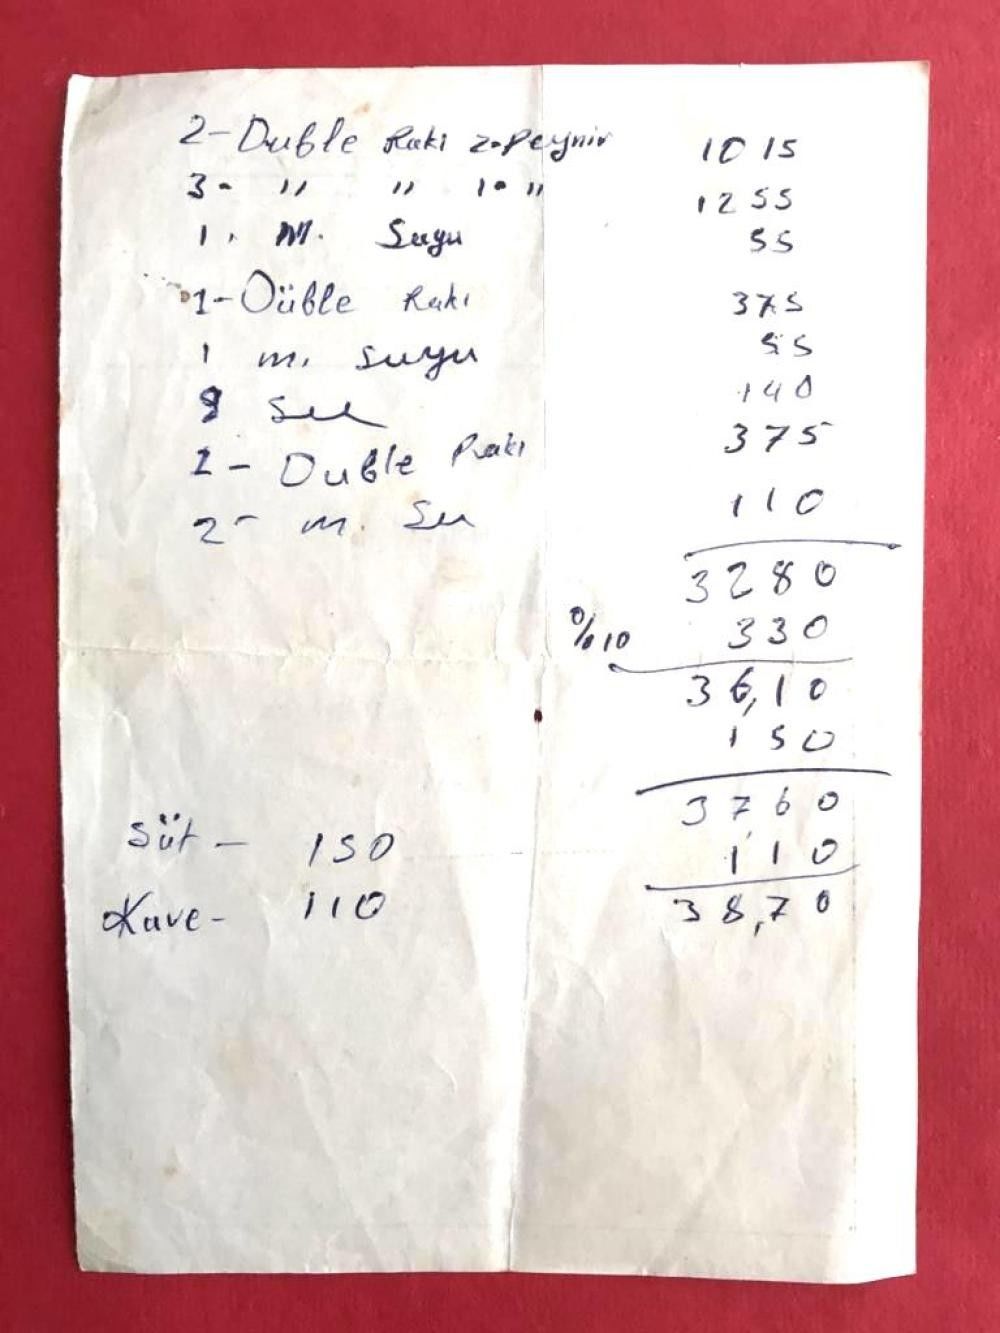 2- Duble Rakı 2-Peynir 1015
3- " " 1- " 1255
1. M. Suyu 55
1- Düble Rakı 375
1 m. Suyu 55
Su 140
1- Duble Rakı 375
2- m. Su 110
3280
%10 330
36,10
150
3760
110
38,70
Süt - 150
Kave- 110